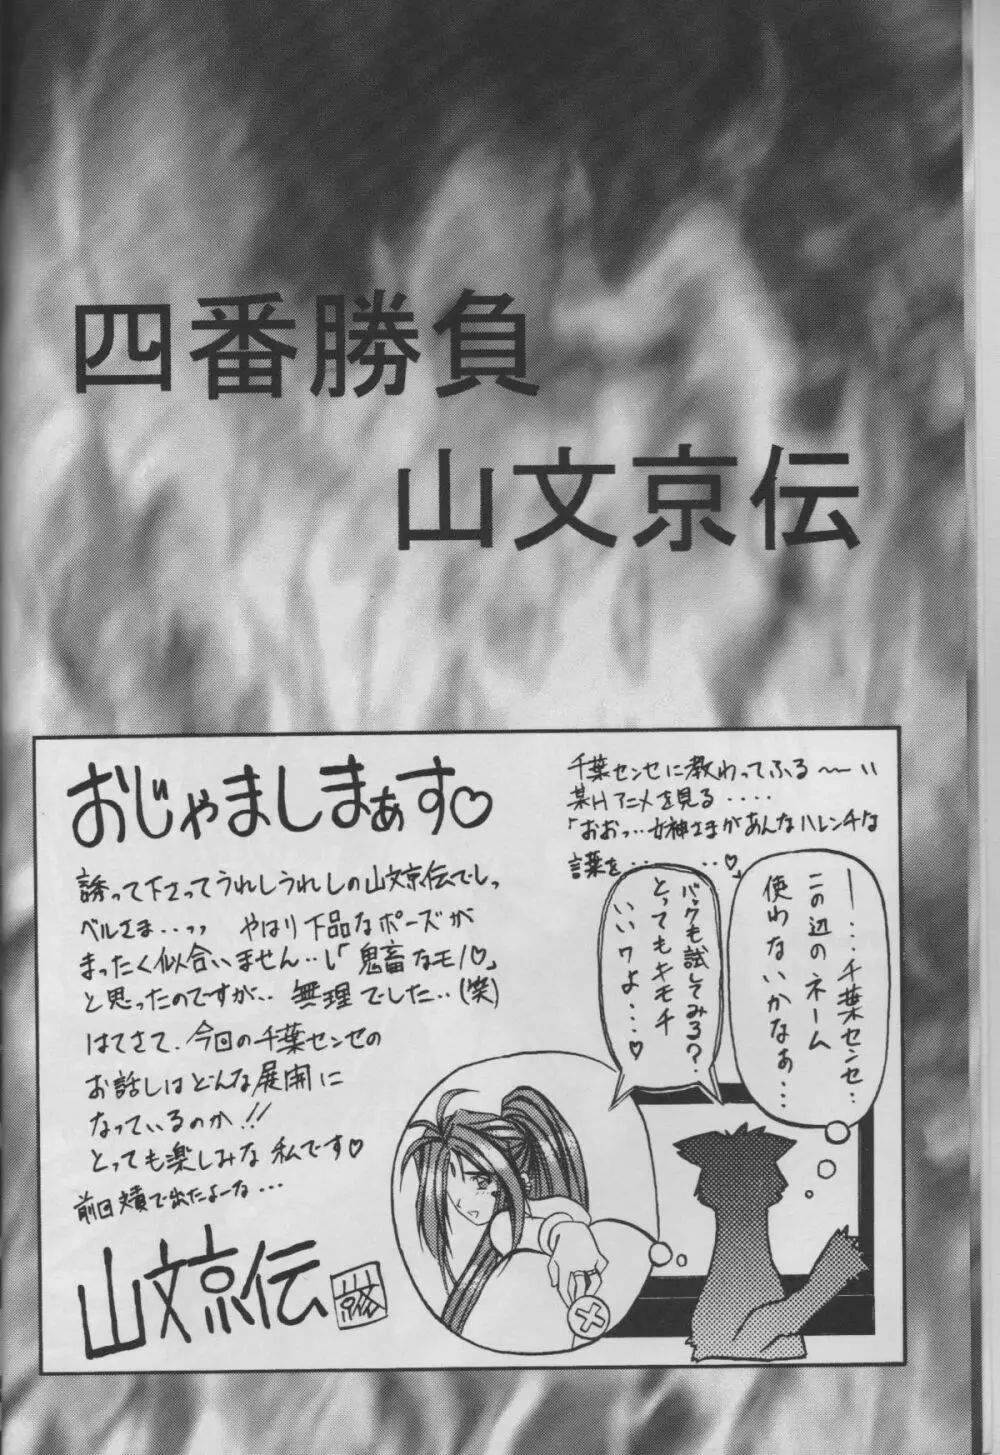 四番勝負
山文京伝
おじゃましまぁす♡
誘って下さってうれしうれしの山文京伝でしっ
ベルさま‥‥ッッ やはり下品なポーズが
まったく似合いません‥し「鬼畜なモノ♡」
と思ったのですが‥ 無理でした‥(笑)
はてさて、今回の千葉センセの
お話しはどんな展開に
なっているのか!!
とっても楽しみな私です♡
で出たよーな‥‥
山文京伝
千葉センセに教わってふる〜〜い
某Hアニメを見る‥‥
「おおっ‥女神さまがあんなハレンチな
言葉を‥‥‥‥♡」
ー‥‥千葉センセ‥
この辺のネーム
使わないかなぁ‥‥
バックも試してみる?
とってもキモチ
いいワよ‥‥♡